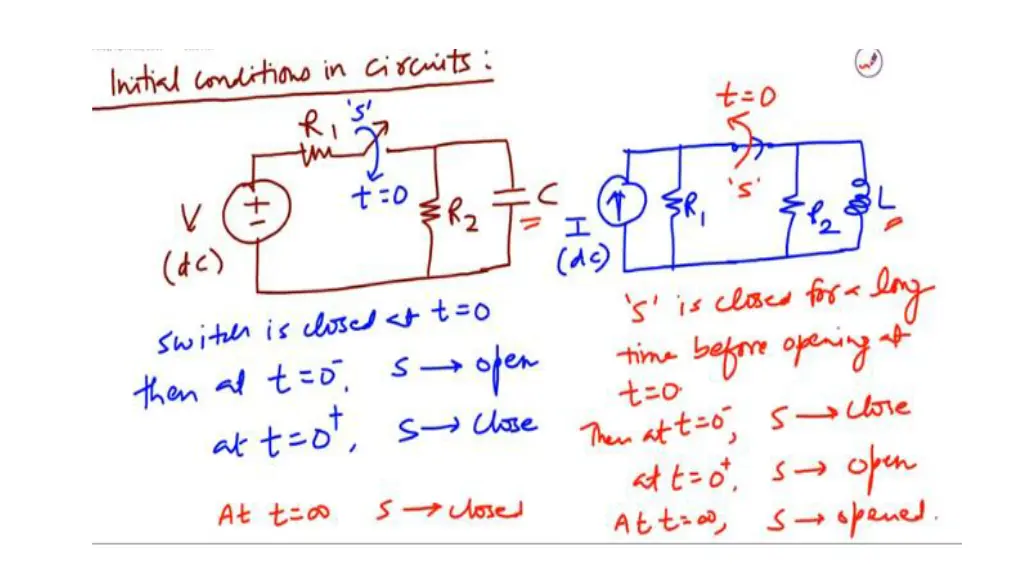 Initial conditions in circuits:
R1 's'
t=0
V
(dc)
+
−
R2
C
t=0
's'
I
(dc)
R1
R2
L
Switch is closed at t=0
then at t=0⁻, S → open
at t=0⁺, S → close
At t=∞ S → closed
's' is closed for a long
time before opening at
t=0.
Then at t=0⁻, S → close
at t=0⁺, S → open
At t=∞, S → opened.